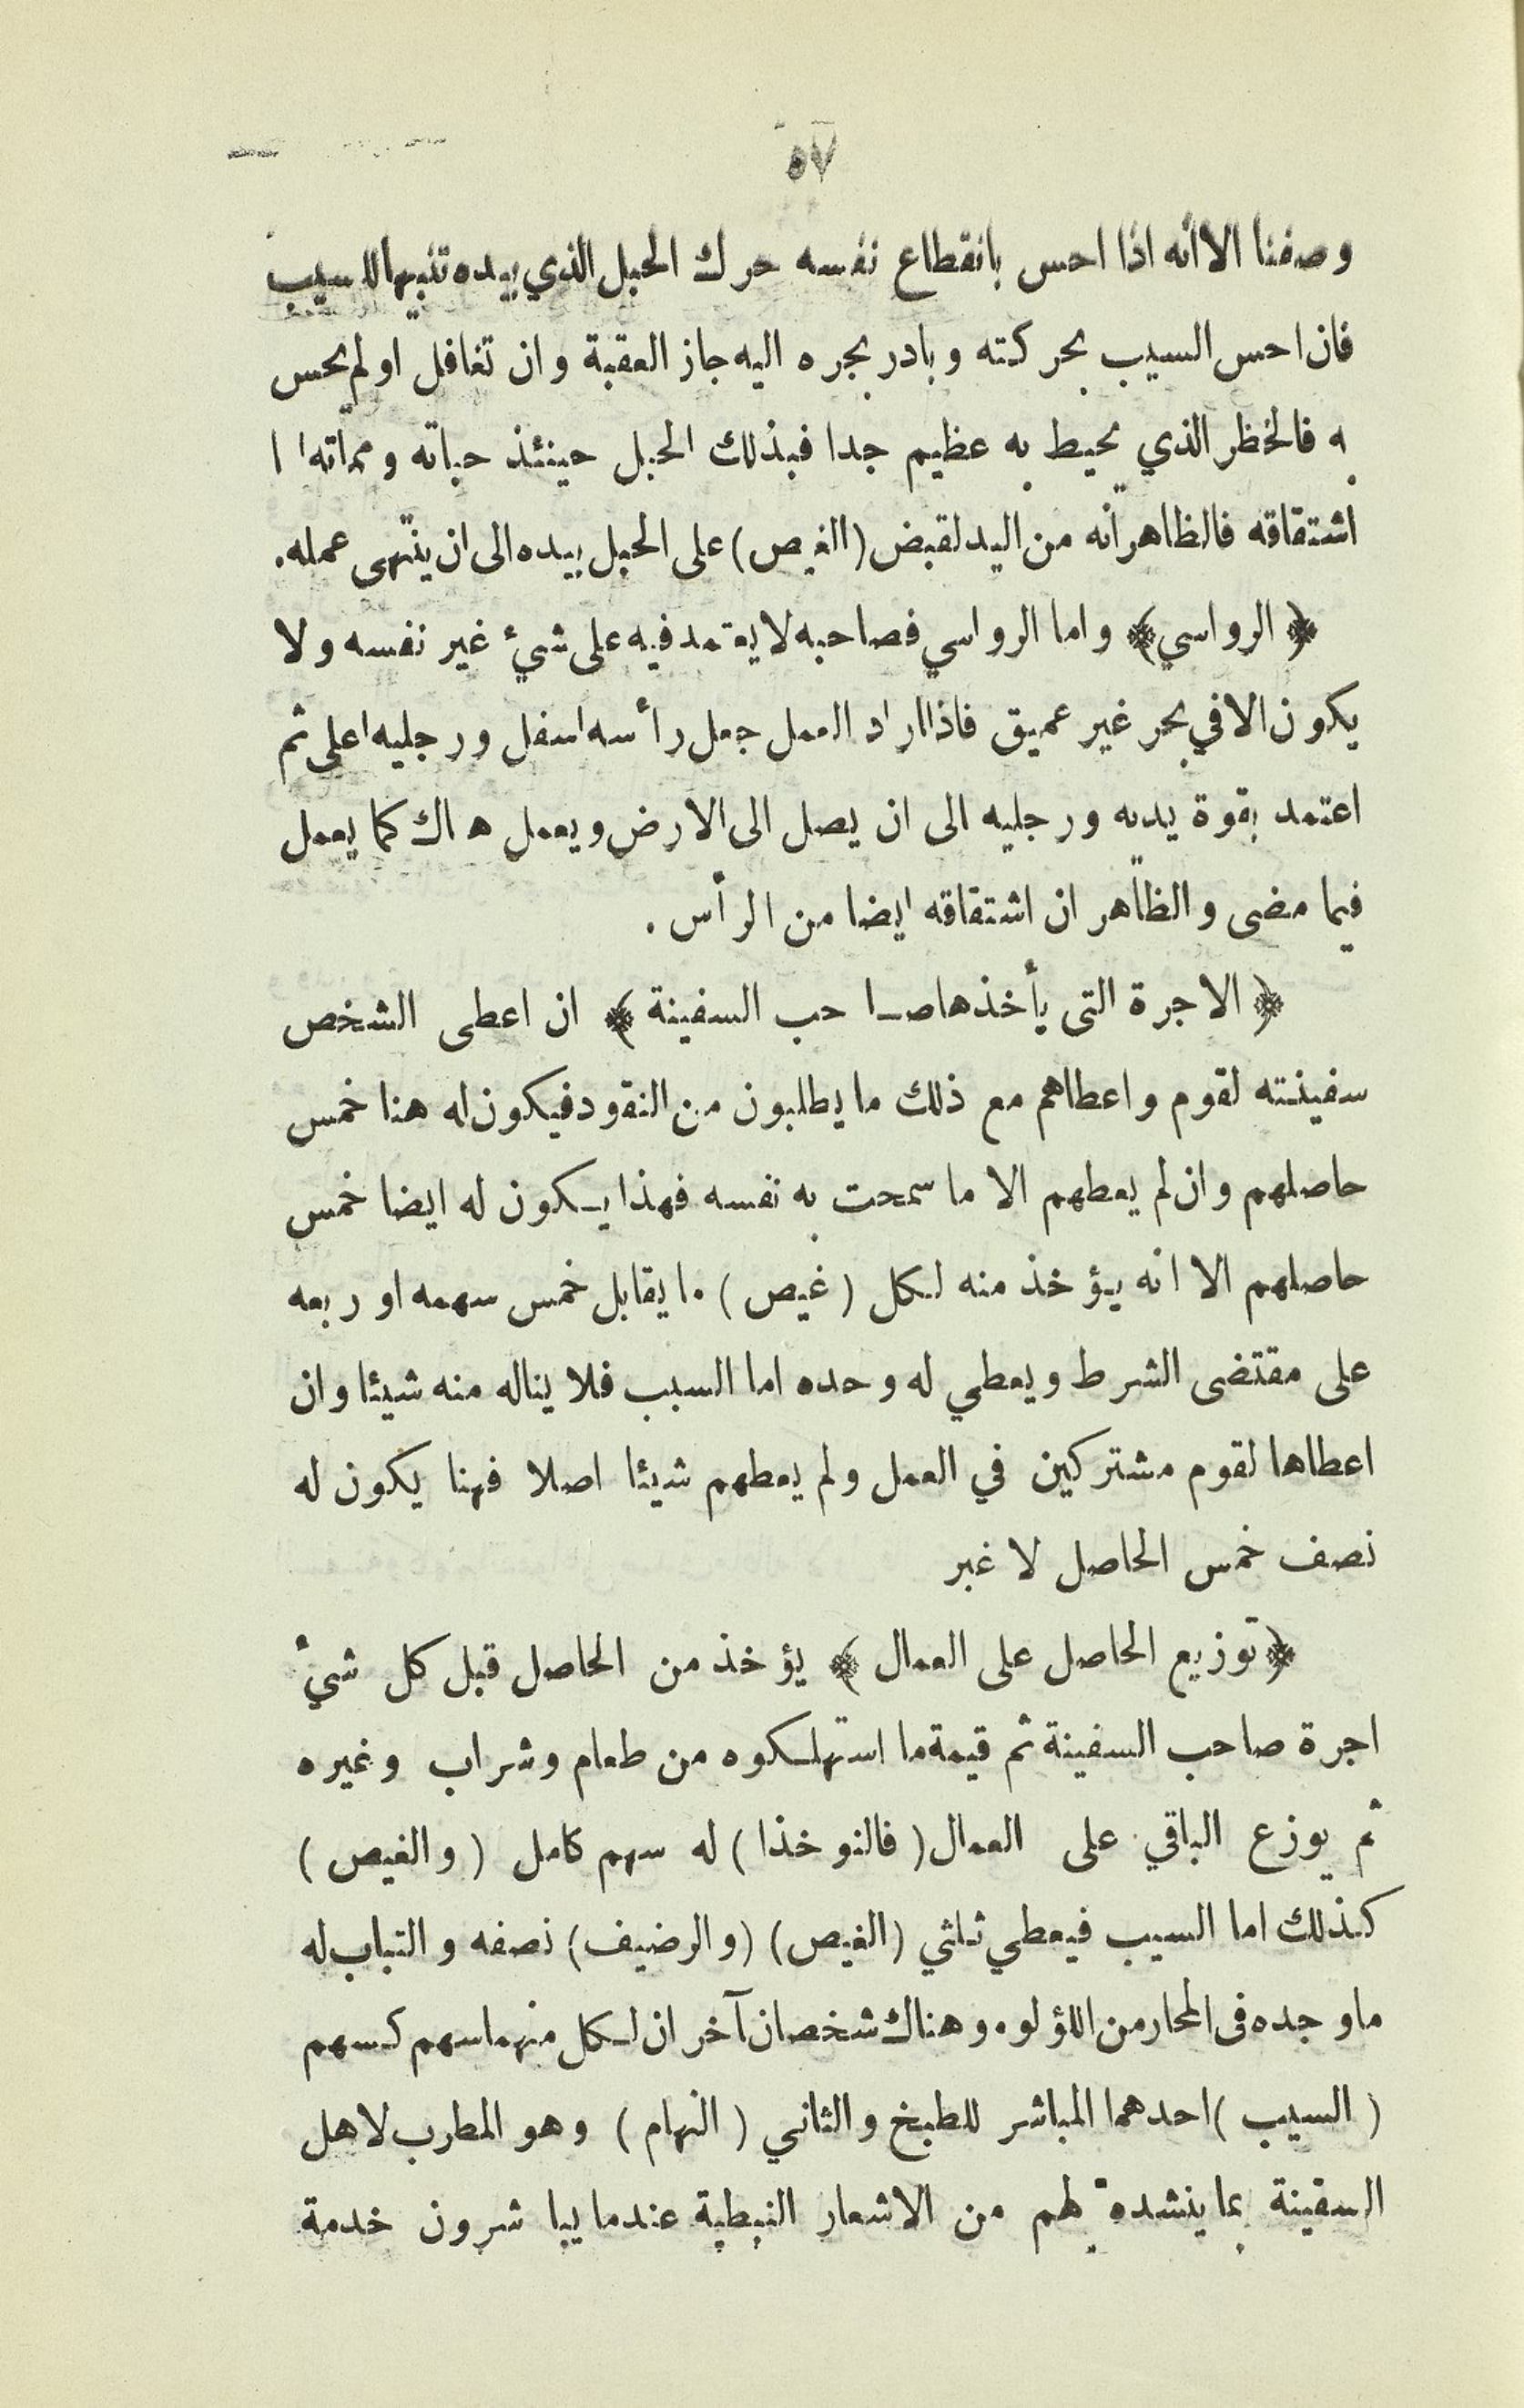 ٥٧
وصفنا الا انه اذا احس بانقطاع نفسه حرك الحبل الذي بيده تنبيها للسيب
فان احس السيب بحركته وبادر بجره اليه جاز العقبة وان تغافل او لم يحس
به فالخظر الذي يحيط به عظيم جدا فبذلك الحبل حينئذ حياته ومماته ا ا
اشتقاقه فالظاهر انه من اليد لقبض (الغيص) على الحبل بيده الى ان ينتهى عمله.
﴿ الرواسي ﴾ واما الرواسي فصاحبه لا يعتمد فيه على شيئ غير نفسه ولا
يكون الا في بحر غير عميق فاذا اراد العمل جعل رأسه اسفل ورجليه اعلى ثم
اعتمد بقوة يديه ورجليه الى ان يصل الى الارض ويعمل هناك كما يعمل
فيما مضى والظاهر ان اشتقاقه ايضا من الرأس .
﴿ الاجرة التى يأخذها صاحب السفينة ﴾ ان اعطى الشخص
سفينته لقوم واعطاهم مع ذلك ما يطلبون من النقود فيكون له هنا خمس
حاصلهم وان لم يعطهم الا ما سمحت به نفسه فهذا يكون له ايضا خمس
حاصلهم الا انه يؤخذ منه لكل ( غيص ) ما يقابل خمس سهمه او ربعه
على مقتضى الشرط ويعطي له وحده اما السيب فلا يناله منه شيئا وان
اعطاها لقوم مشتركين في العمل ولم يعطهم شيئا اصلا فهنا يكون له
نصف خمس الحاصل لا غير
﴿ توزيع الحاصل على العمال ﴾ يؤخذ من الحاصل قبل كل شيٴ
اجرة صاحب السفينة ثم قيمة ما استهلكوه من طعام وشراب وغيره
ثم يوزع الباقي على العمال ( فالنوخذا ) له سهم كامل ( والغيص )
كذلك اما السيب فيعطي ثلثي (الغيص) (والرضيف) نصفه والتباب له
ماوجده فى المحار من اللؤلوء وهناك شخصان آخران لكل منهما سهم كسهم
( السيب ) احدهما المباشر للطبخ والثاني ( النهام ) وهو المطرب لاهل
السفينة بما ينشده لهم من الاشعار النبطية عندما يباشرون خدمة